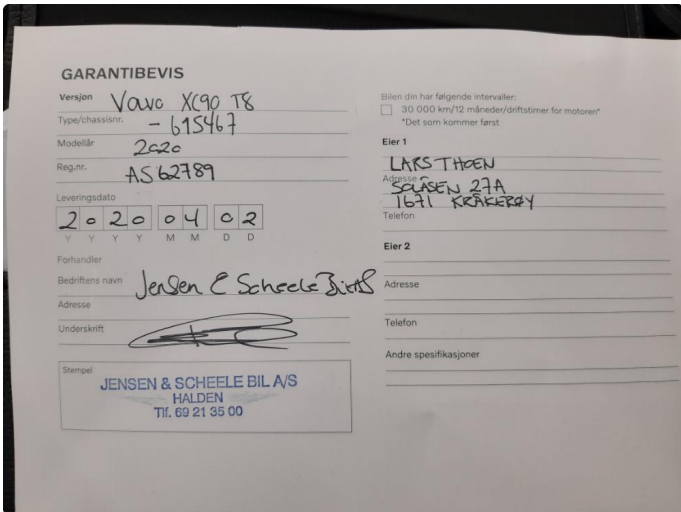 GARANTIBEVIS
Versjon Volvo XC90 T8
Type/chassisnr. - 615467
Modellår 2020
Reg.nr. AS62789
Leveringsdato
2 0 2 0 0 4 0 2
Y Y Y Y M M D D
Forhandler
Bedriftens navn Jensen & Scheele Bil AS
Adresse
Underskrift
Stempel
JENSEN & SCHEELE BIL A/S
HALDEN
Tlf. 69 21 35 00
Bilen din har følgende intervaller:
30 000 km/12 måneder/driftstimer for motoren*
*Det som kommer først
Eier 1
LARS THOEN
Adresse SOLÅSEN 27A
1671 KRÅKERØY
Telefon
Eier 2
Adresse
Telefon
Andre spesifikasjoner